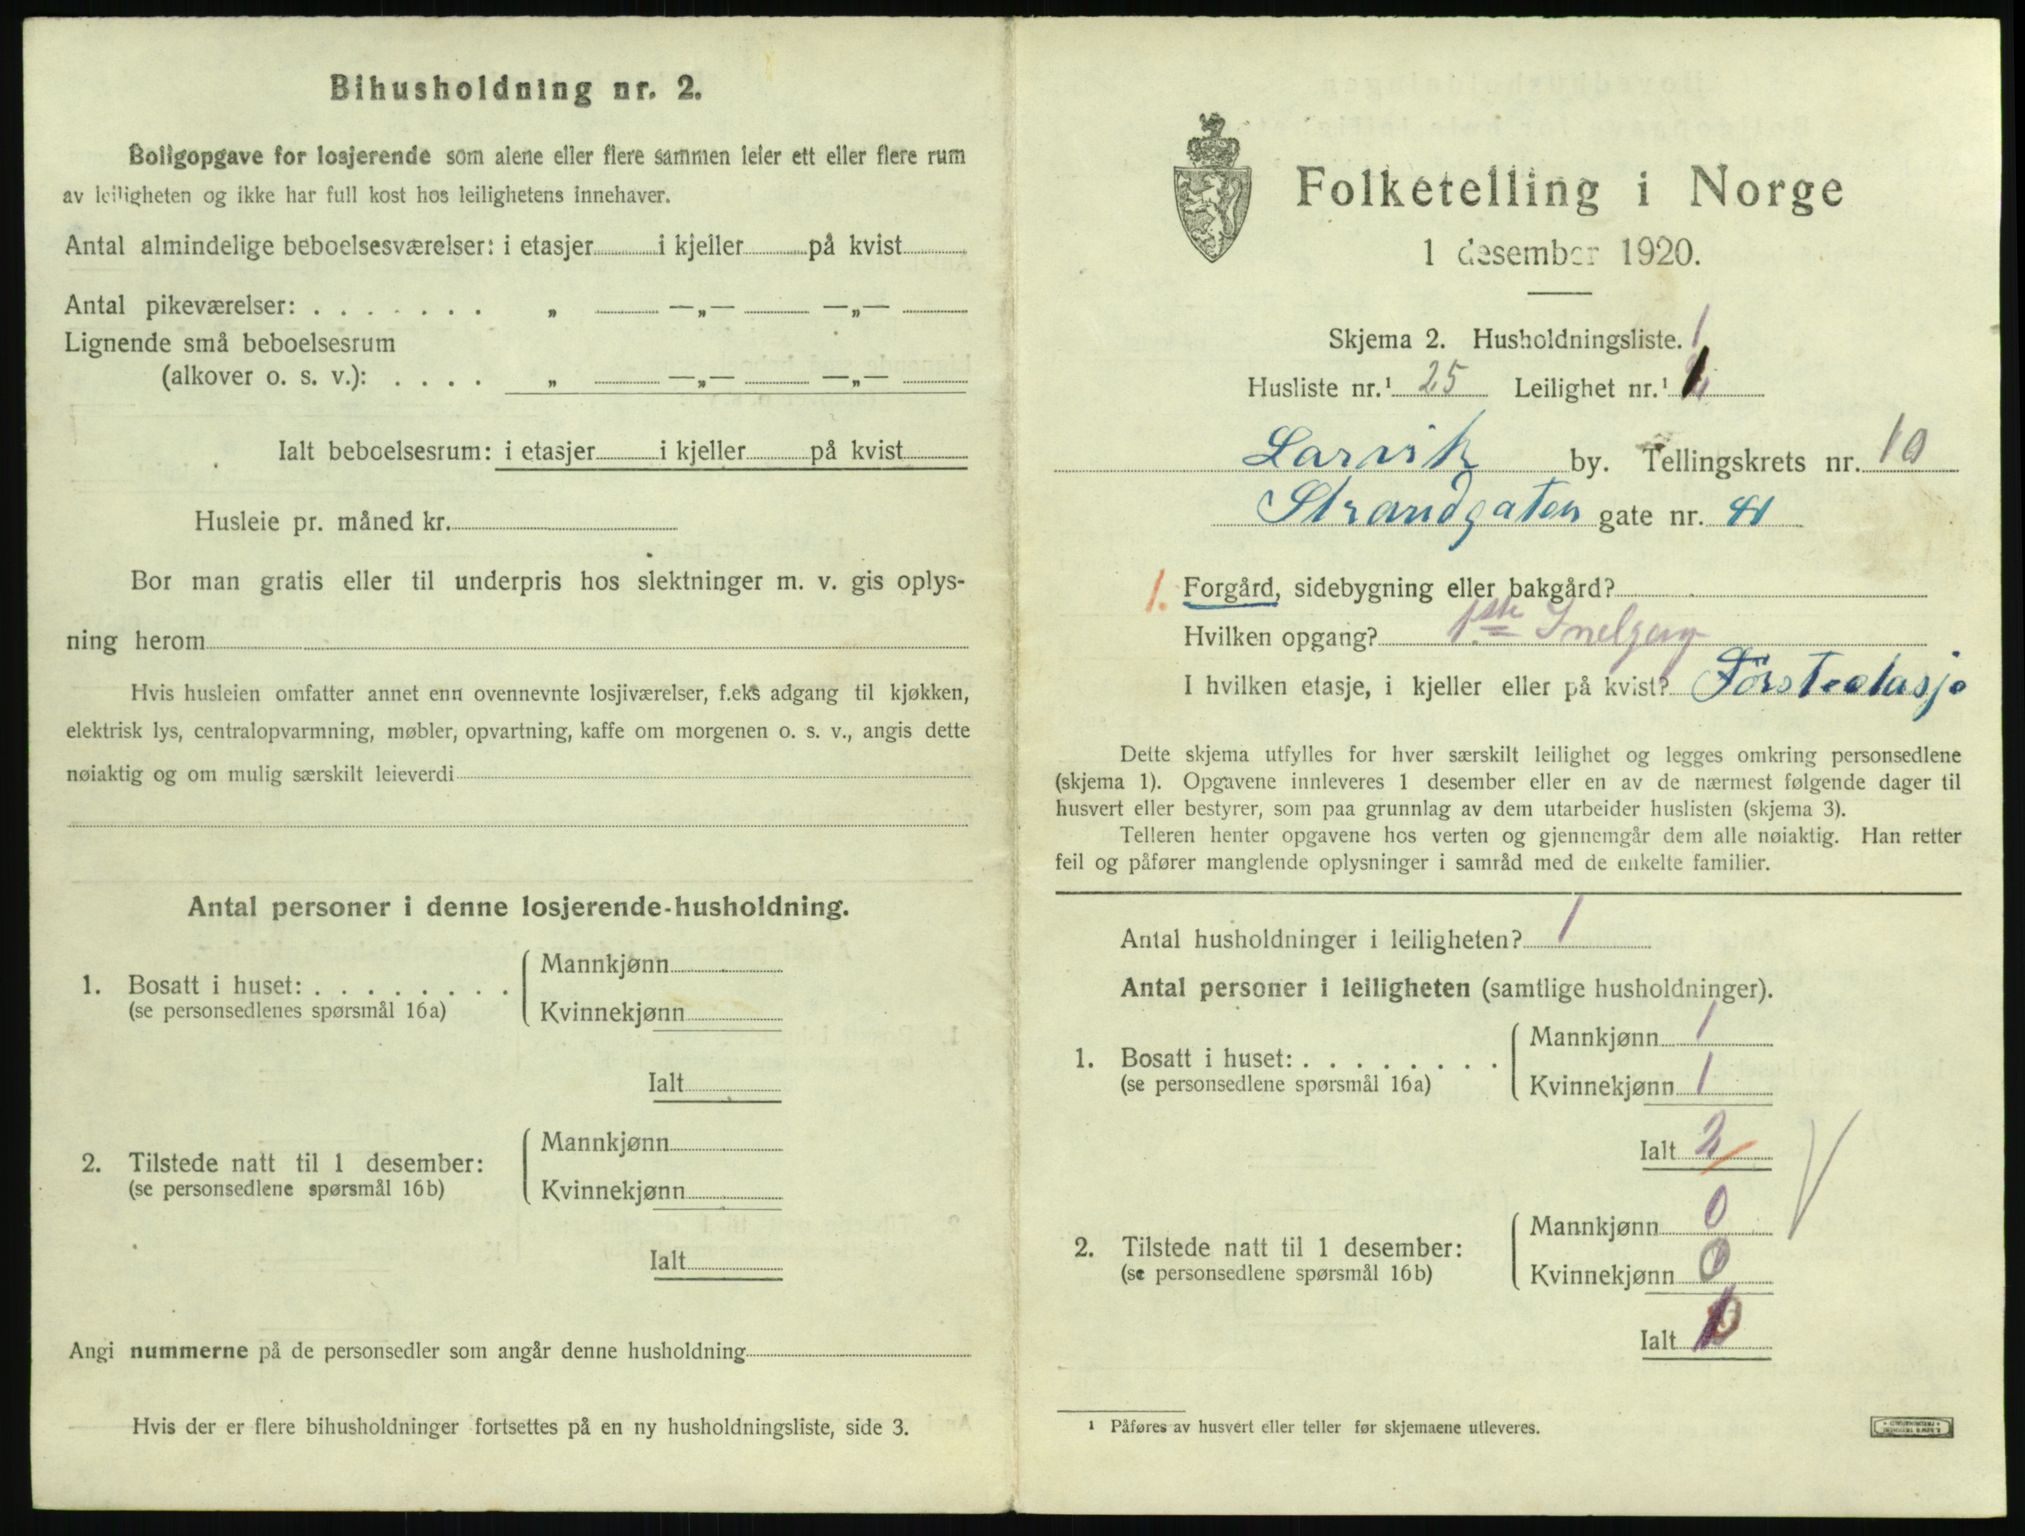 Bihusholdning nr. 2.
Boligopgave for losjerende som alene eller flere sammen leier ett eller flere rum
av leiligheten og ikke har full kost hos leilighetens innehaver.
Antal almindelige beboelsesværelser: i etasjer i kjeller på kvist
Antal pikeværelser: . . . . . . . „ —„— —„—
Lignende små beboelsesrum
(alkover o. s. v.): . . . . „ —„— —„—
Ialt beboelsesrum: i etasjer i kjeller på kvist
Husleie pr. måned kr.
Bor man gratis eller til underpris hos slektninger m. v. gis oplys-
ning herom
Hvis husleien omfatter annet enn ovennevnte losjiværelser, f.eks adgang til kjøkken,
elektrisk lys, centralopvarmning, møbler, opvartning, kaffe om morgenen o. s. v., angis dette
nøiaktig og om mulig særskilt leieverdi
Antal personer i denne losjerende-husholdning.
1. Bosatt i huset: . . . . . . . .
(se personsedlenes spørsmål 16a)
Mannkjønn
Kvinnekjønn
Ialt
2. Tilstede natt til 1 desember:
(se personsedlene spørsmål 16b)
Mannkjønn
Kvinnekjønn
Ialt
Angi nummerne på de personsedler som angår denne husholdning
Hvis der er flere bihusholdninger fortsettes på en ny husholdningsliste, side 3.
Folketelling i Norge
1 desember 1920.
Skjema 2. Husholdningsliste. 1
Husliste nr.¹ 25 Leilighet nr.¹ 1
Larvik by. Tellingskrets nr. 10
Strandgaten gate nr. 41
1. Forgård, sidebygning eller bakgård?
Hvilken opgang? 1ste
I hvilken etasje, i kjeller eller på kvist? Försteetasje
Dette skjema utfylles for hver særskilt leilighet og legges omkring personsedlene
(skjema 1). Opgavene innleveres 1 desember eller en av de nærmest følgende dager til
husvert eller bestyrer, som paa grunnlag av dem utarbeider huslisten (skjema 3).
Telleren henter opgavene hos verten og gjennemgår dem alle nøiaktig. Han retter
feil og påfører manglende oplysninger i samråd med de enkelte familier.
Antal husholdninger i leiligheten? 1
Antal personer i leiligheten (samtlige husholdninger).
1. Bosatt i huset: . . . . . . . .
(se personsedlene spørsmål 16a)
Mannkjønn 1
Kvinnekjønn 1
Ialt 2
2. Tilstede natt til 1 desember:
(se personsedlene spørsmål 16b)
Mannkjønn 0
Kvinnekjønn 0
Ialt
¹ Påføres av husvert eller teller før skjemaene utleveres.